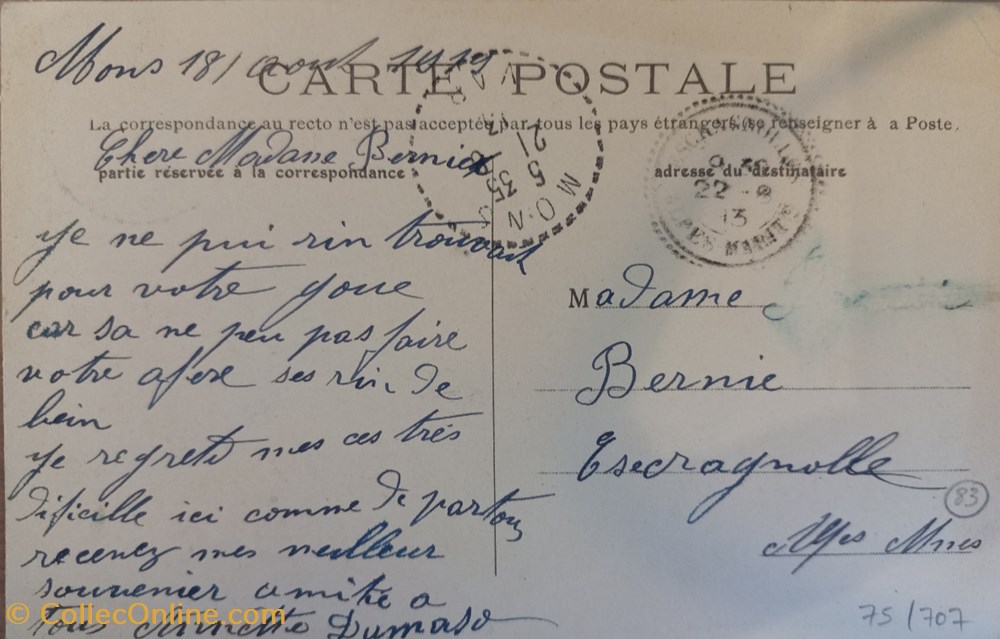 Mons 18 / aout 1913
CARTE POSTALE
La correspondance au recto n'est pas acceptée par tous les pays étrangers (se renseigner à a Poste.
Chere Madame Bernie
partie réservée à la correspondance
adresse du destinataire
MONS
VAR
22 - 8
13
ALPES MARITES
ye ne pui rin
pour votre
car sa ne peu pas faire
votre afere ses rin de
bein
ye regrete mes ces très
dificille ici comme de partou
recevez mes meilleur
souvenier amitie a
tous Dumas
Madame
Bernie
Esecragnolle
Alpes Mmes
83
75/707
© CollecOnline.com